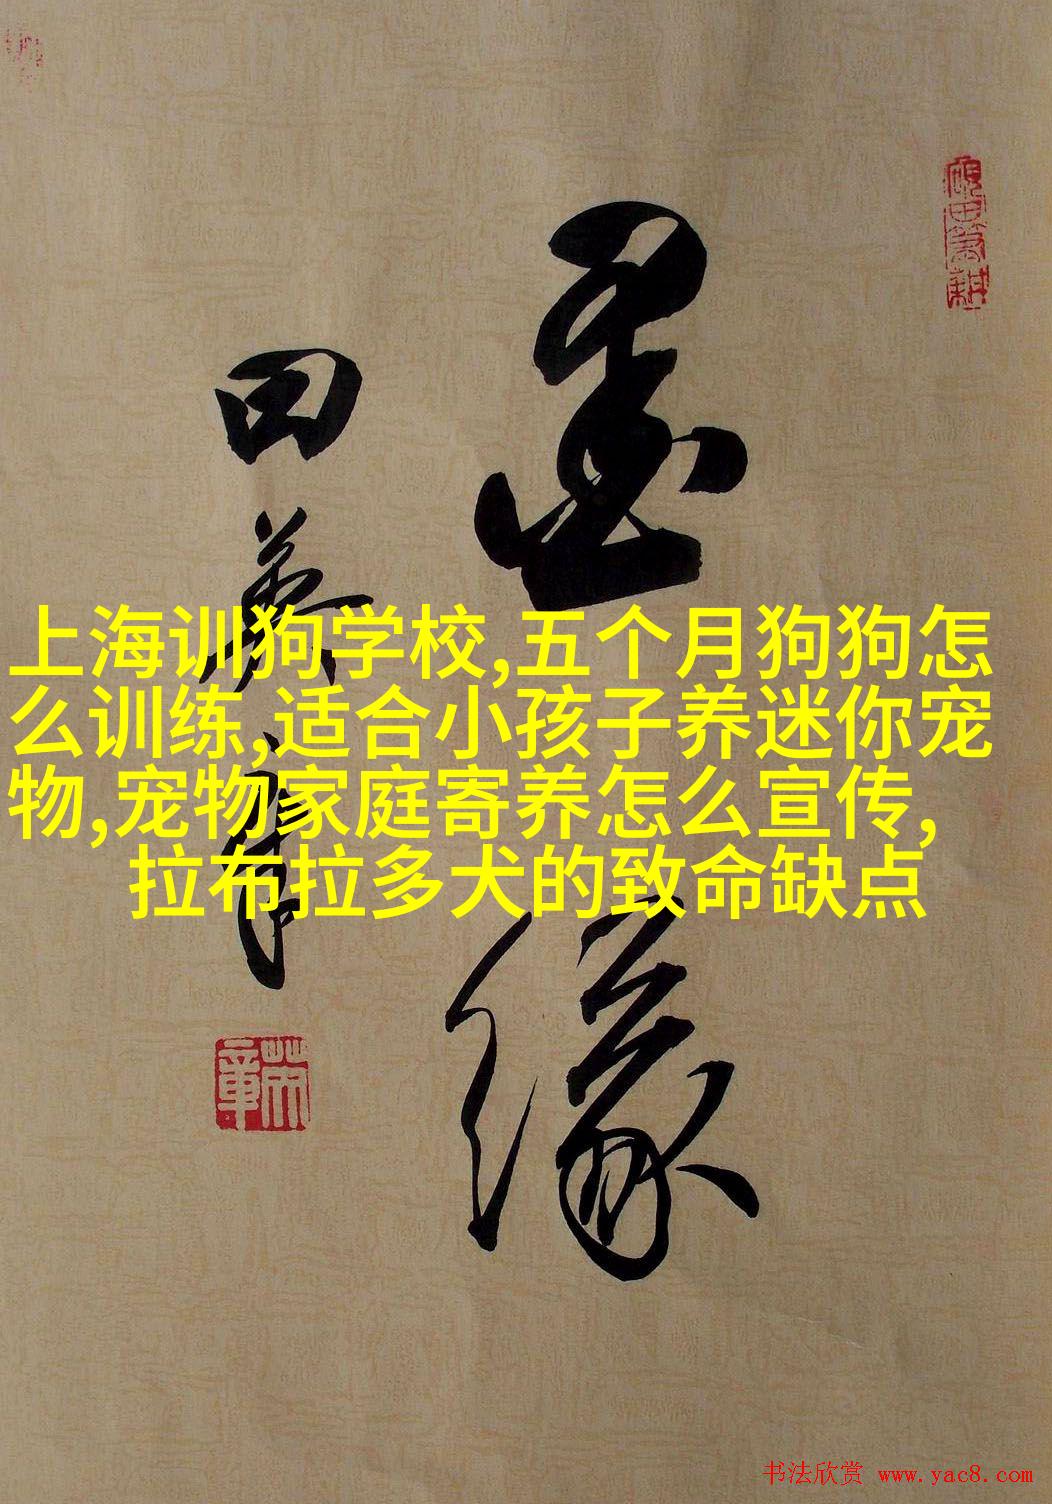 上海训狗学校,五个月狗狗怎
么训练,适合小孩子养迷你宠
物,宠物家庭寄养怎么宣传,
拉布拉多犬的致命缺点
墨缘
田英章
砚田笔耕
英章
书法欣赏 www.yac8.com